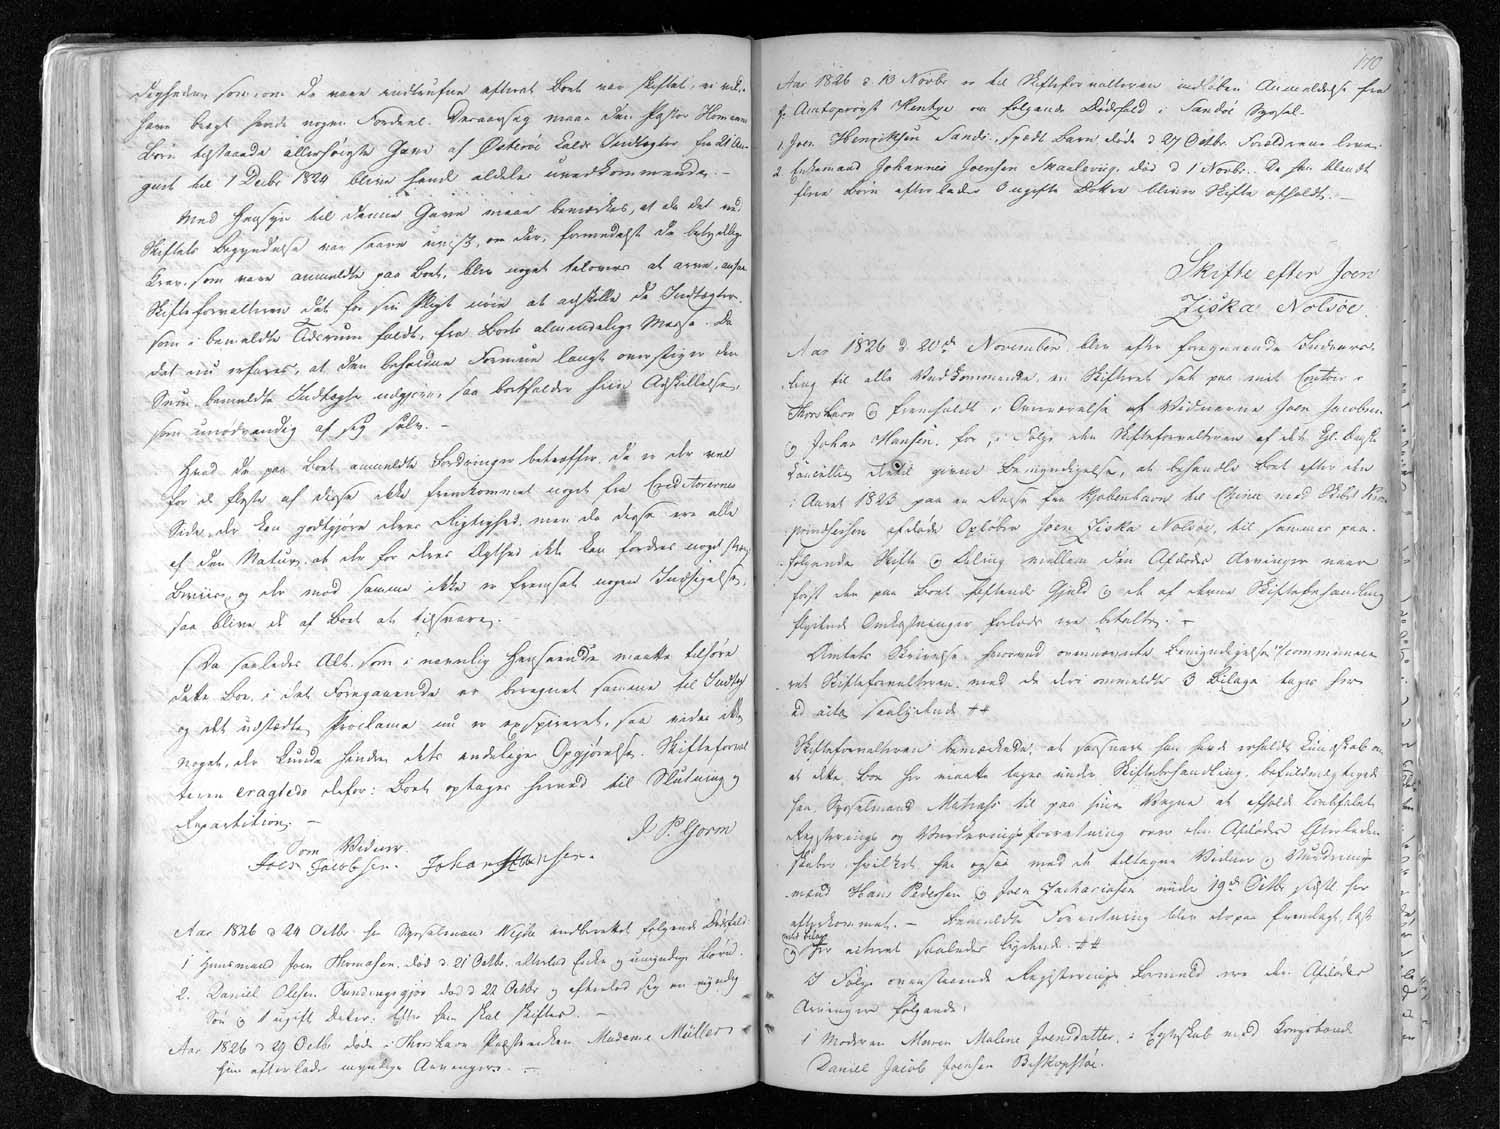 som om de vare indtrufne efterat Boet var skiftet, vi vilde
have bragt hende nogen Fordeel. Deraarsag maae den Pastor
Børn tilstaaede allerhøieste Gave af Østerøe Indtægter fra 21 Au-
gust til 1 Decbr 1824 blive hende aldeles uvedkommende. -
Med Hensyn til denne Gave maae bemærkes, at da det ved
Skiftets Begyndelse var saare uvist, om der, formedelst de betydelige
Krav, som vare anmeldte paa Boet, blev noget tilovers at arve, ansaae
Skifteforvalteren det for sin Pligt nøie at adskille de Indtægter,
som i bemeldte Tidsrum faldt, fra Boets almindelige Masse. Da
det nu erfares, at den beholdne Formue langt overstiger den
Sum, bemeldte Indtægter udgjøre, saa bortfalder hiin Adskillelse,
som unødvendig af sig selv. -
Hvad de paa Boet anmeldte Fordringer betræffer, da er der vel
for de fleste af disse ikke fremkommet noget fra Creditorernes
Side, der kan godtgjøre deres Rigtighed, men da disse ere alle
af den Natur, at der for deres Ægthed ikke kan fordres noget
Beviis, og der mod samme ikke er fremsat nogen Indsigelse,
saa blive de af Boet at tilsvare. -
Da saaledes Alt, som i nævnlig Henseende maatte tilføres
dette Boe, i det Foregaaende er beregnet samme til Indtægt
og det udstædte Proclama nu er exspireret, saa vides ikke
noget, der kunde hindre dets endelige Opgjørelse. Skifteforval
teren eragtede derfor: Boet optages herved til Slutning og
Repartition. -
J. P. Gorm
Som Vidner
Joen Jacobsen. Johan Hansen.
Aar 1826 d 24 Octbr har Sysselmand indberettet følgende Dødsfald:
1 Huusmand Joen Thomasen, død d 21 Octbr, efterlod Enke og umyndige Børn.
2. Daniel Olesen død d 22 Octbr og efterlod sig en myndig
Søn og 1 ugift Dater. Efter ham skal skiftes. -
Aar 1826 d 29 Octbr døde i Thorshavn Præsteenken, Madame Müller
hun efterlader myndige Arvinger. -
170
Aar 1826 d 13 Novbr er til Skifteforvalteren indløben Anmeldelse fra
Hr Amtsprovst Hentze om følgende Dødsfald i Sandøe Syssel.
1 Joen Henriksen Sands, spædt Barn døde d 27 Octbr. Forældrene leve.
2 Enkemand Johannes Joensen Skaalevig, død d 1 Novbr. Da han blandt
flere Børn efterlader 3 ugifte Døtre bliver Skifte afholdt. -
Skifte efter Joen
Ziska Nolsøe.
Aar 1826 d. 20de November blev efter foregaaende Indvars-
ling til alle Vedkommende, en Skifteret sat paa mit Contoir i
Thorshavn og fremholdt i Overværelse af Vidnerne Joen Jacobsen
og Johan Hansen, for, i Følge den Skifteforvalteren af det Kgl. Danske
Cancellie givne Bemyndigelse, at behandle Boet efter den
i Aaret 1823 paa en Reise fra Kjøbenhavn til China med Skibet Kron
prindsessen afdøde Opløber Joen Ziska Nolsøe, til sammes paa-
følgende Skifte og Deling mellem den Afdødes Arvinger naar
først den paa Boet heftende Gjeld og de af denne Skiftebehandling
flydende Omkostninger forlods ere betalte. -
Amtets Skrivelse, hvorved ovennævnte Bemyndigelse er communice
ret Skifteforvalteren, med de deri ommeldte 3 Bilage tages her
ad acta saalydende ++
Skifteforvalteren bemærkede, at saasnart han havde erholdt Kundskab om
at dette Boe her maatte tages under Skiftebehandling, befuldmægtigede
han Sysselmand Matras til paa sine Vegne at afholde lovbefalet
Registrerings og Vurderingsforretning over den Afdødes Efterladen-
skaber, hvilket han ogsaa med de tiltagne Vidner og Vurderings
mænd Hans Pedersen og Joen Zachariasen under 19de Octbr sidstl har
efterkommet. - Bemeldte Forretning blev derpaa fremlagt, læst
med Bilag
og her acteret saaledes lydende. ++
I Følge ovenstaaende Registrerings Bemeld. ere den Afdødes
Arvinger følgende:
1 Moderen Maren Malene Joensdatter, i Egteskab med Kongsbonde
Daniel Jacob Joensen Biskopstøe.